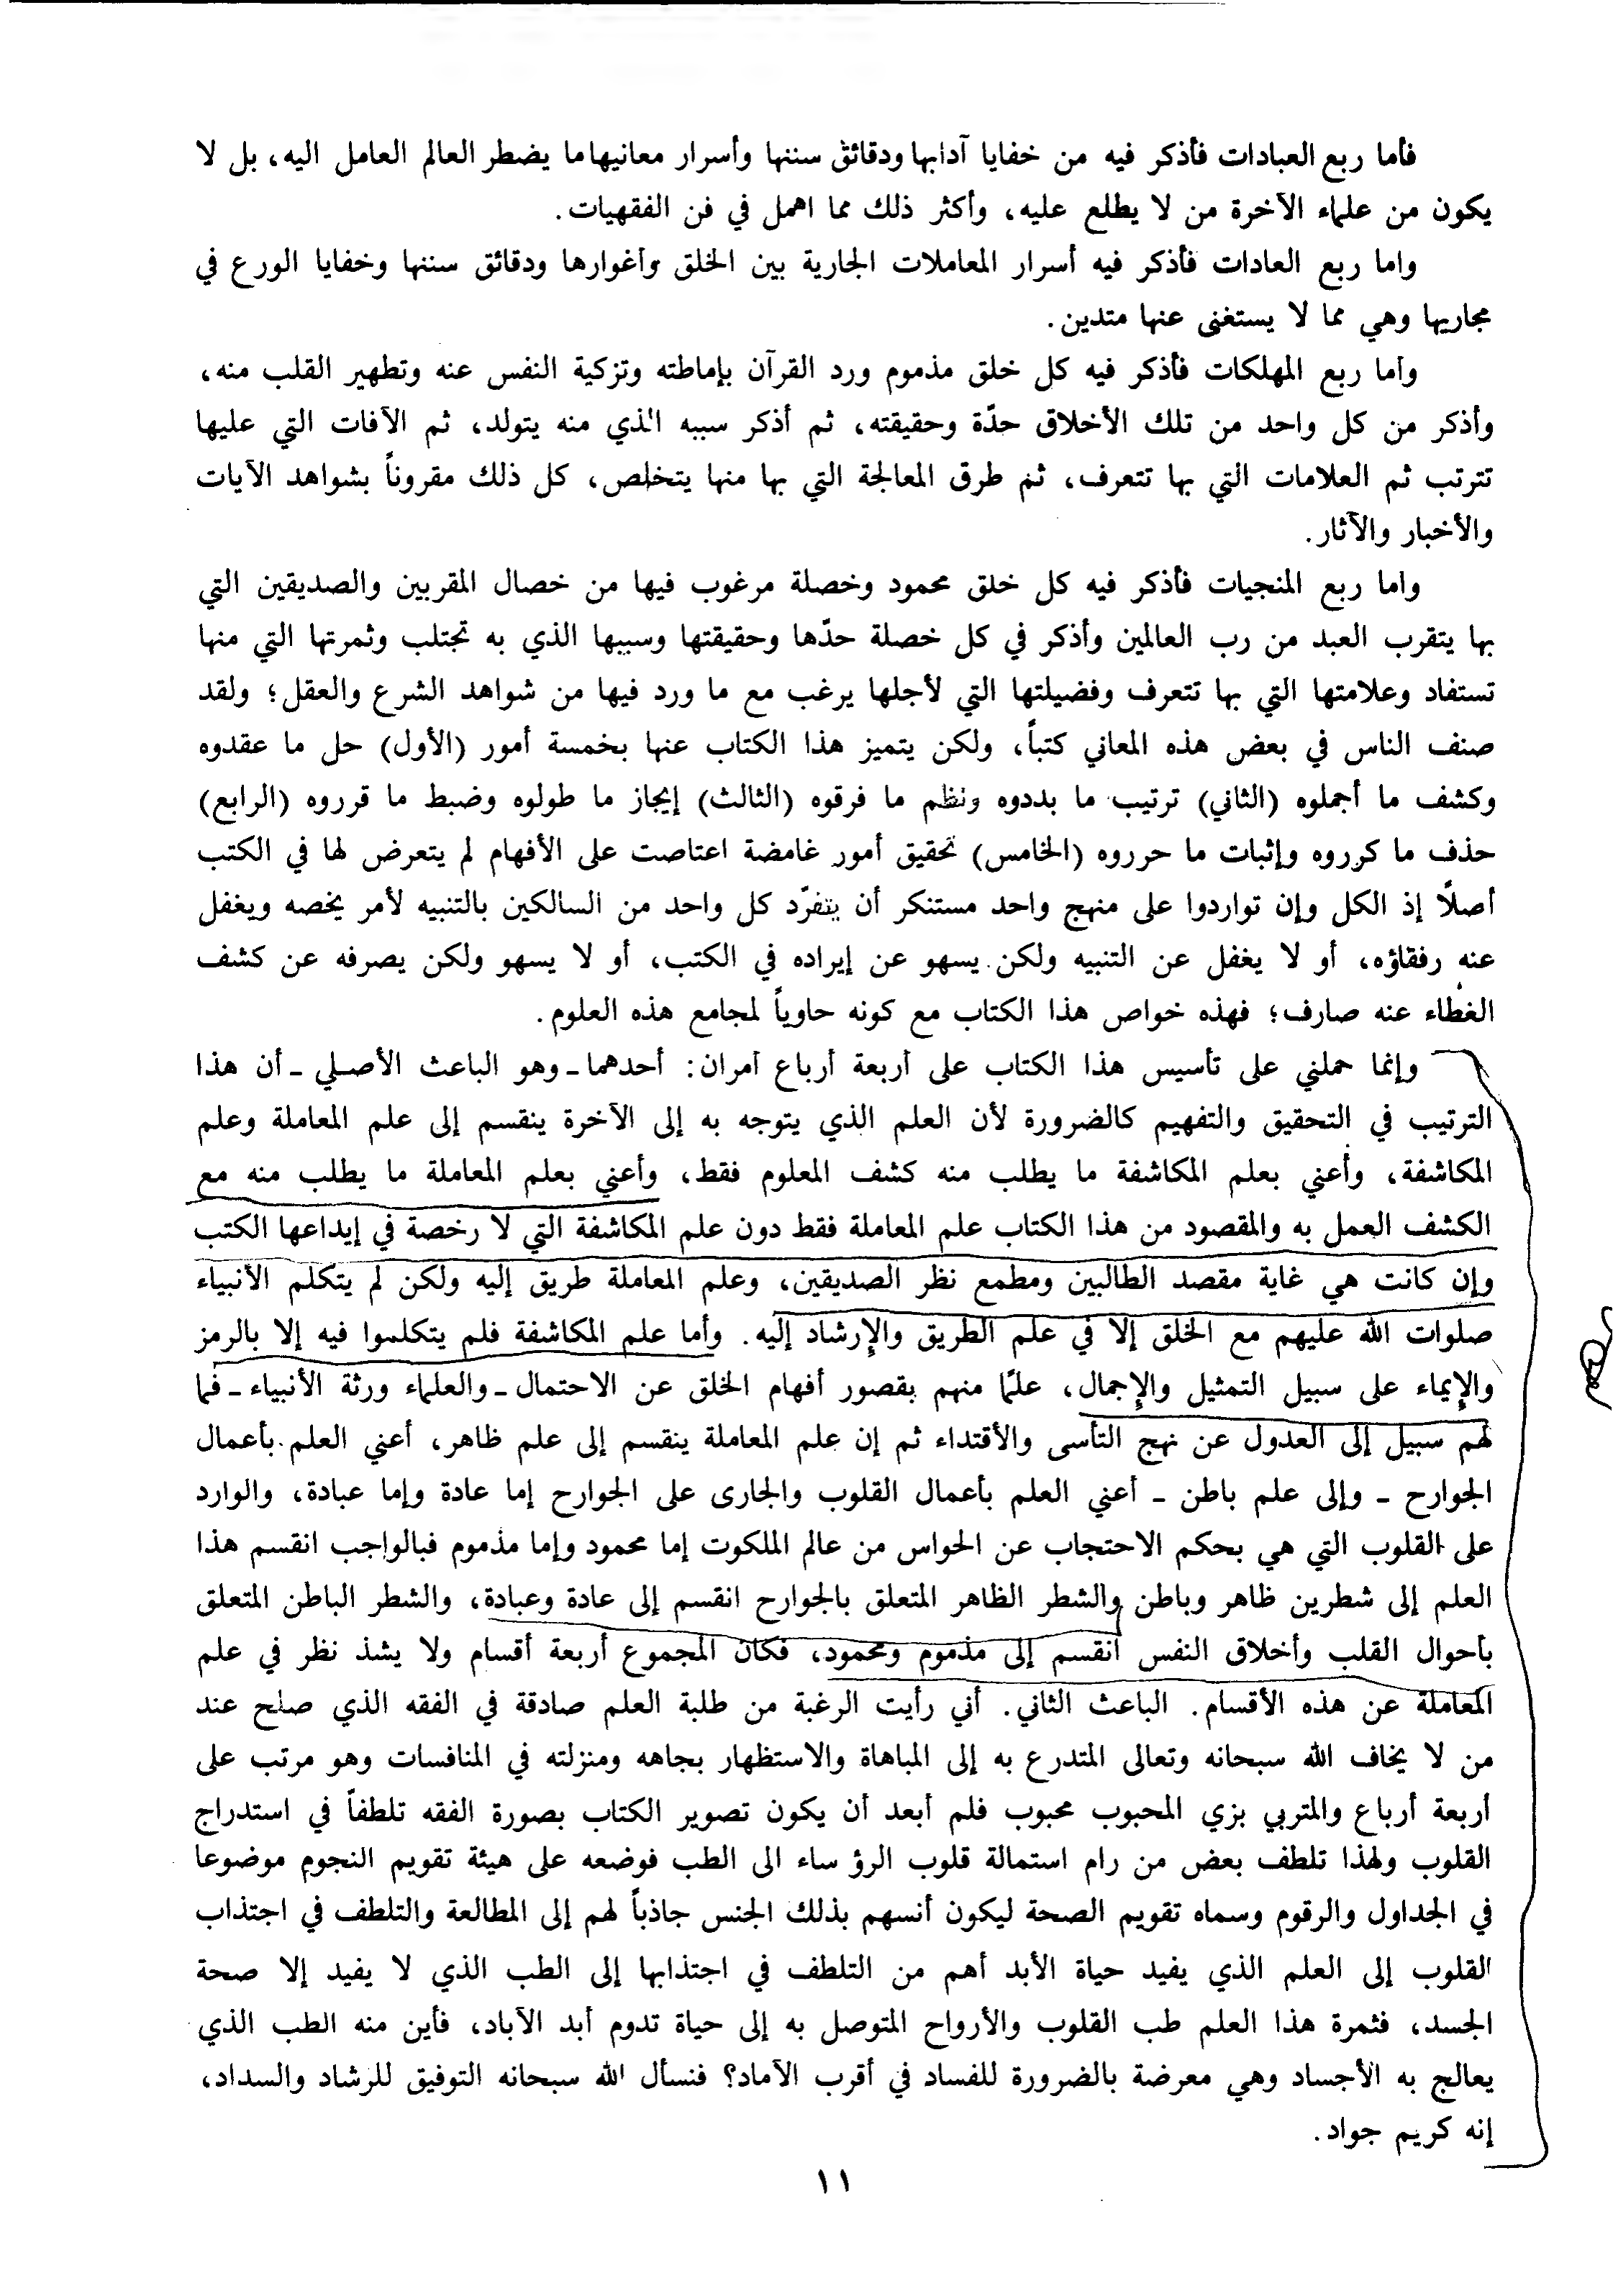 فأما ربع العبادات فأذكر فيه من خفايا آدابها ودقائق سننها وأسرار معانيها ما يضطر العالم العامل اليه، بل لا
يكون من علماء الآخرة من لا يطلع عليه، وأكثر ذلك مما اهمل في فن الفقهيات.
واما ربع العادات فأذكر فيه أسرار المعاملات الجارية بين الخلق وأغوارها ودقائق سننها وخفايا الورع في
مجاريها وهي مما لا يستغنى عنها متدين.
وأما ربع المهلكات فأذكر فيه كل خلق مذموم ورد القرآن بإماطته وتزكية النفس عنه وتطهير القلب منه،
وأذكر من كل واحد من تلك الأخلاق حدّة وحقيقته، ثم أذكر سببه الذي منه يتولد، ثم الآفات التي عليها
تترتب ثم العلامات التي بها تتعرف، ثم طرق المعالجة التي بها منها يتخلص، كل ذلك مقروناً بشواهد الآيات
والأخبار والآثار.
واما ربع المنجيات فأذكر فيه كل خلق محمود وخصلة مرغوب فيها من خصال المقربين والصديقين التي
بها يتقرب العبد من رب العالمين وأذكر في كل خصلة حدّها وحقيقتها وسببها الذي به تجتلب وثمرتها التي منها
تستفاد وعلامتها التي بها تتعرف وفضيلتها التي لأجلها يرغب مع ما ورد فيها من شواهد الشرع والعقل؛ ولقد
صنف الناس في بعض هذه المعاني كتباً، ولكن يتميز هذا الكتاب عنها بخمسة أمور (الأول) حل ما عقدوه
وكشف ما أجملوه (الثاني) ترتيب ما بددوه ونظم ما فرقوه (الثالث) إيجاز ما طولوه وضبط ما قرروه (الرابع)
حذف ما كرروه وإثبات ما حرروه (الخامس) تحقيق أمور غامضة اعتاصت على الأفهام لم يتعرض لها في الكتب
أصلًا إذ الكل وإن تواردوا على منهج واحد مستنكر أن يتفرّد كل واحد من السالكين بالتنبيه لأمر يخصه ويغفل
عنه رفقاؤه، أو لا يغفل عن التنبيه ولكن يسهو عن إيراده في الكتب، أو لا يسهو ولكن يصرفه عن كشف
الغطاء عنه صارف؛ فهذه خواص هذا الكتاب مع كونه حاوياً لمجامع هذه العلوم.
وإنما حملني على تأسيس هذا الكتاب على أربعة أرباع أمران: أحدهما ـ وهو الباعث الأصلي ـ أن هذا
الترتيب في التحقيق والتفهيم كالضرورة لأن العلم الذي يتوجه به إلى الآخرة ينقسم إلى علم المعاملة وعلم
المكاشفة، وأعني بعلم المكاشفة ما يطلب منه كشف المعلوم فقط، وأعني بعلم المعاملة ما يطلب منه مع
الكشف العمل به والمقصود من هذا الكتاب علم المعاملة فقط دون علم المكاشفة التي لا رخصة في إيداعها الكتب
وإن كانت هي غاية مقصد الطالبين ومطمع نظر الصديقين، وعلم المعاملة طريق إليه ولكن لم يتكلم الأنبياء
صلوات الله عليهم مع الخلق إلا في علم الطريق والإرشاد إليه. وأما علم المكاشفة فلم يتكلموا فيه إلا بالرمز
والإيماء على سبيل التمثيل والإجمال، علمًا منهم بقصور أفهام الخلق عن الاحتمال ـ والعلماء ورثة الأنبياء ـ فما
لهم سبيل إلى العدول عن نهج التأسى والأقتداء ثم إن علم المعاملة ينقسم إلى علم ظاهر، أعني العلم بأعمال
الجوارح ـ وإلى علم باطن ـ أعني العلم بأعمال القلوب والجارى على الجوارح إما عادة وإما عبادة، والوارد
على القلوب التي هي بحكم الاحتجاب عن الحواس من عالم الملكوت إما محمود وإما مذموم فبالواجب انقسم هذا
العلم إلى شطرين ظاهر وباطن والشطر الظاهر المتعلق بالجوارح انقسم إلى عادة وعبادة، والشطر الباطن المتعلق
بأحوال القلب وأخلاق النفس انقسم إلى مذموم ومحمود، فكان المجموع أربعة أقسام ولا يشذ نظر في علم
المعاملة عن هذه الأقسام. الباعث الثاني. أني رأيت الرغبة من طلبة العلم صادقة في الفقه الذي صلح عند
من لا يخاف الله سبحانه وتعالى المتدرع به إلى المباهاة والاستظهار بجاهه ومنزلته في المنافسات وهو مرتب على
أربعة أرباع والمتربي بزي المحبوب محبوب فلم أبعد أن يكون تصوير الكتاب بصورة الفقه تلطفاً في استدراج
القلوب ولهذا تلطف بعض من رام استمالة قلوب الرؤ ساء الى الطب فوضعه على هيئة تقويم النجوم موضوعا
في الجداول والرقوم وسماه تقويم الصحة ليكون أنسهم بذلك الجنس جاذباً لهم إلى المطالعة والتلطف في اجتذاب
القلوب إلى العلم الذي يفيد حياة الأبد أهم من التلطف في اجتذابها إلى الطب الذي لا يفيد إلا صحة
الجسد، فثمرة هذا العلم طب القلوب والأرواح المتوصل به إلى حياة تدوم أبد الآباد، فأين منه الطب الذي
يعالج به الأجساد وهي معرضة بالضرورة للفساد في أقرب الآماد؟ فنسأل الله سبحانه التوفيق للرشاد والسداد،
إنه كريم جواد.
١١